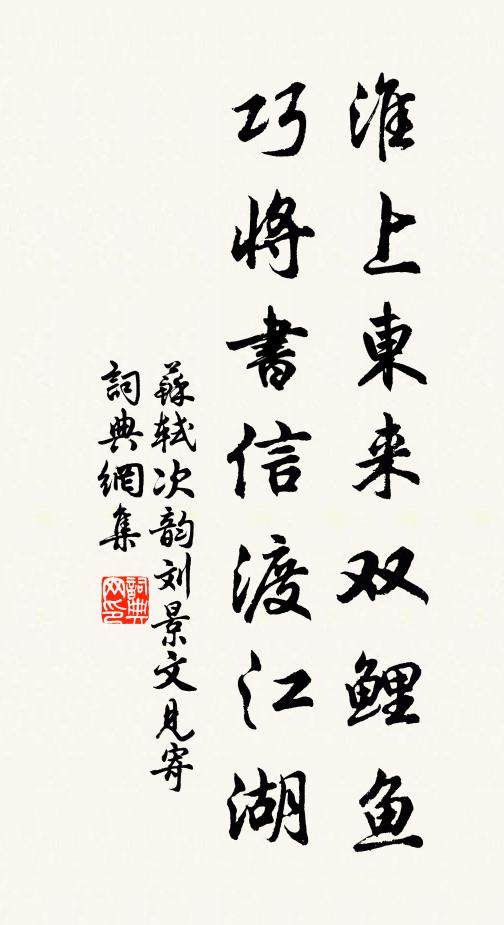 淮上東来双鲤鱼
巧将書信渡江湖
蘇轼次韵刘景文見寄
詞典網集
詞典网印